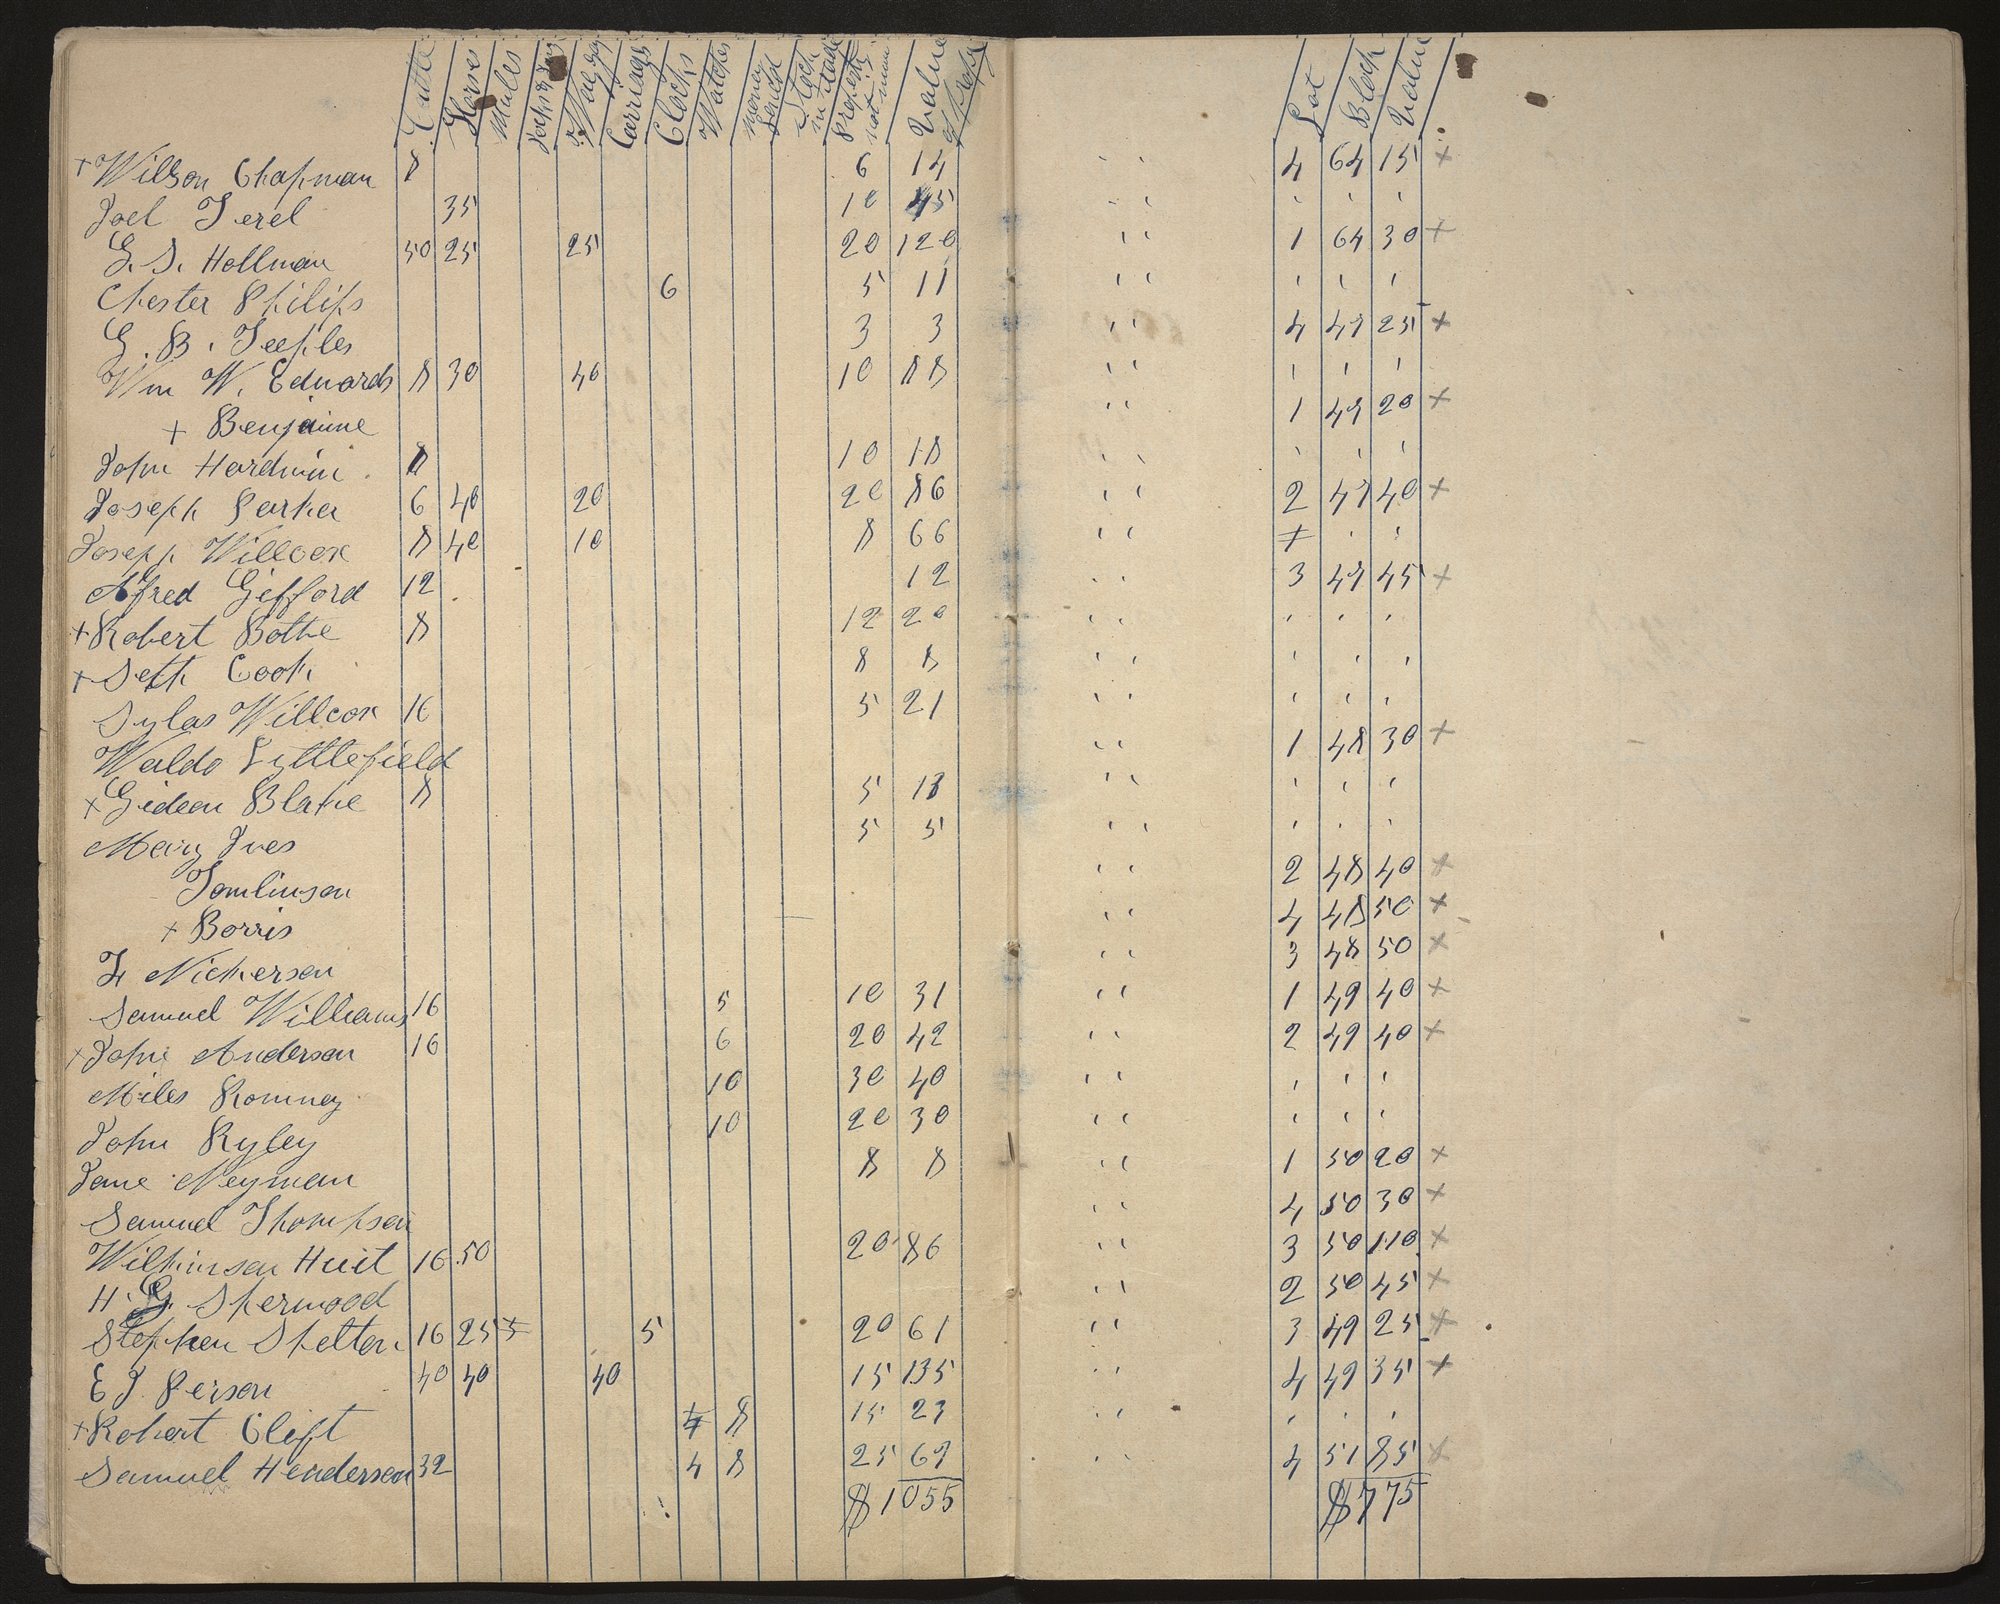 Cattle Horses Mules Waggon Carriages Clocks Watches money Stock in trade Property not num Value of Prop Lot Block Value
+ Willson Chapman 8 6 14 " 4 64 15 +
Joel Terel 35 10 45 " ' ' '
G. S. Hollman 50 25 25 20 120 " 1 64 30 +
Chester Philips 6 5 11 " ' ' '
G. B. Teeples 3 3 " 4 47 25 +
Wm W. Edwards 8 30 40 10 88 " ' ' '
+ Benjamine " 1 47 20 +
John Hardman 8 10 18 " ' ' '
Joseph Parker 6 40 20 20 86 " 2 47 40 +
Joseph Willcox 8 40 10 8 66 " ' '
Alfred Gifford 12 12 " 3 47 45 +
+ Robert Bothe 8 12 20 " ' ' '
+ Seth Cook 8 8 " ' ' '
Sylas Willcox 16 5 21 " ' ' '
Waldo Lyttlefield " 1 48 30 +
+ Gideon Blake 8 5 13 " ' ' '
Mary Ives 5 5 " ' ' '
Tomlinson " 2 48 40 +
+ Borris " 4 48 50 +
L Nickerson " 3 48 50 +
Samuel Williams 16 5 10 31 " 1 49 40 +
+ John Anderson 16 6 20 42 " 2 49 40 +
Miles Romney 10 30 40 " ' ' '
John Ryley 10 20 30 " ' ' '
Jane Neyman 8 8 " 1 50 20 +
Samuel Thompson " 4 50 30 +
Wilkinson Huit 16 50 20 86 " 3 50 110 +
H. G. Sherwood " 2 50 45 +
Stephen Shelton 16 25 5 20 61 " 3 49 25 +
E J. Person 40 40 40 15 135 " 4 49 35 +
+ Robert Clift 8 15 23 " ' ' '
Samuel Henderson 32 4 8 25 69 " 4 51 85 +
$1055 $775